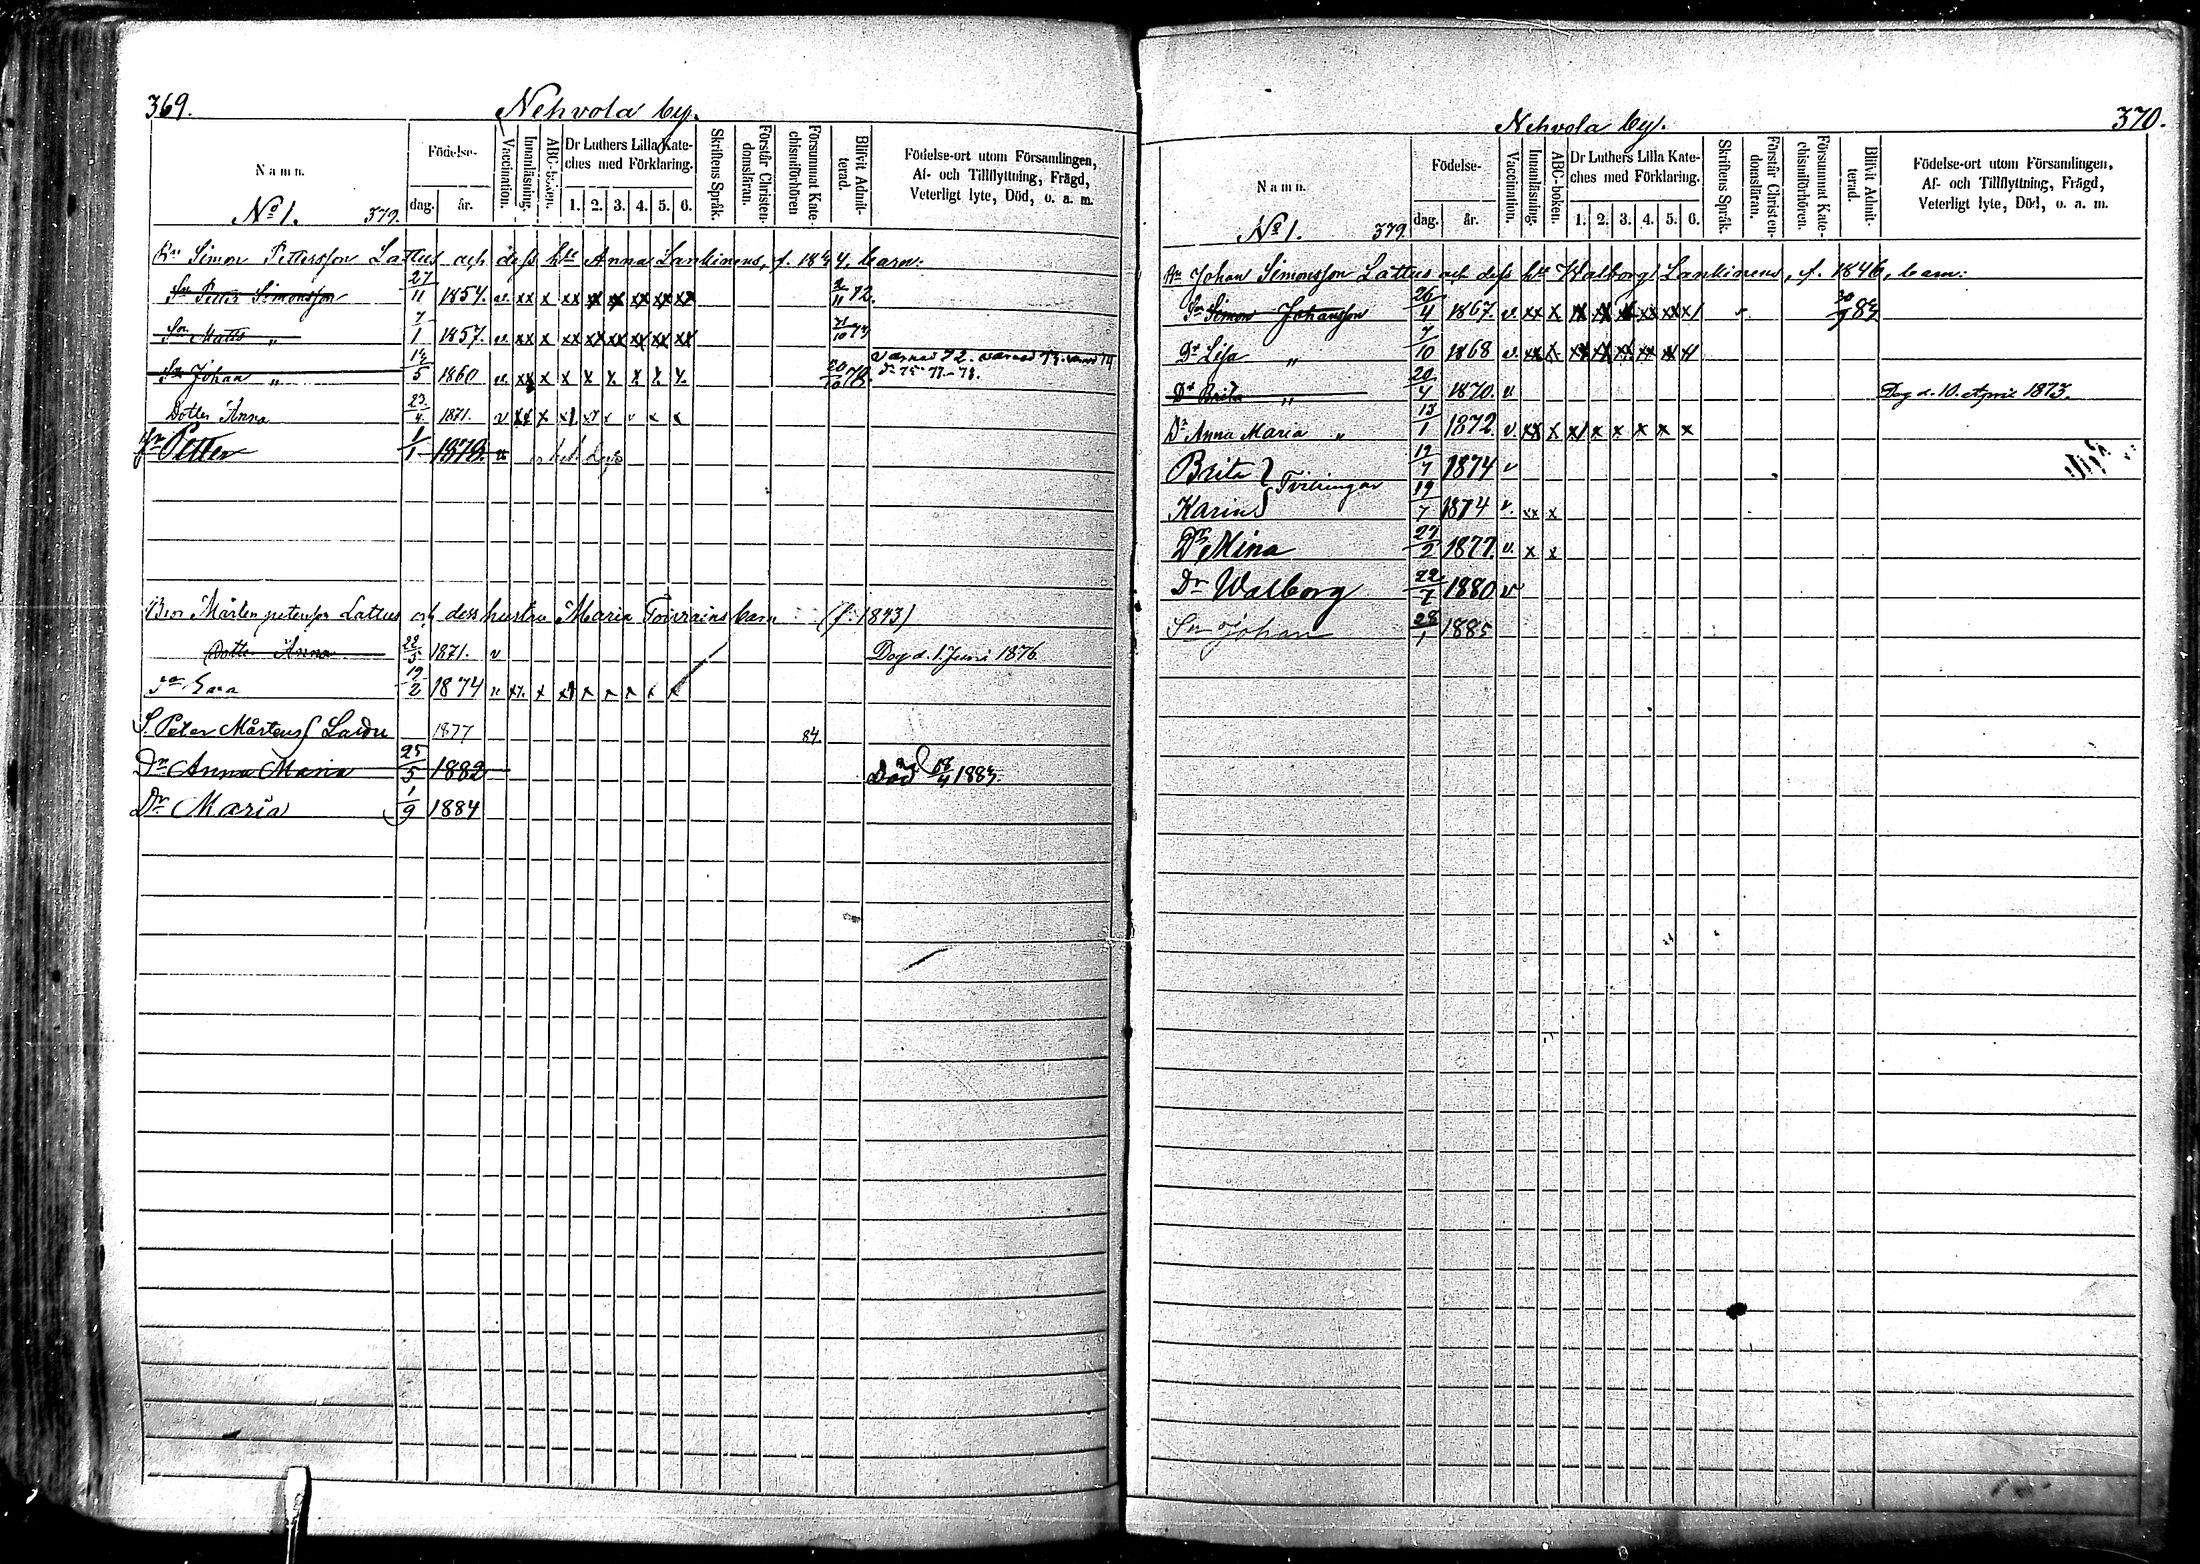 369.
Nehvola by.
Namn.
Födelse-
dag. år.
Vaccination.
Innanläsning.
ABC-boken.
Dr Luthers Lilla Kate-
ches med Förklaring.
1. 2. 3. 4. 5. 6.
Skriftens Språk.
Förstår Christen-
domsläran.
Försummat Kate-
chismiförhören
Blifvit Admit-
terad.
Födelse-ort utom Församlingen,
Af- och Tillflyttning, Frägd,
Veterligt lyte, Död, o. a. m.
No 1. 379.
Simon Pettersson Lattus och dess Anna Lankinens, f. 1844, barn:
Sn Petter Simonsson 27/11 1854. v. xx x xx xx xx xx xx xx 2/11 72.
Sn Matts " 7/1 1857. v. xx x xx xx xx xx xx xx 21/10 73
Sn Johan " 14/5 1860 v. xx x x x x x x x 20/10 78.
Dotter Anna 23/4 1871. v xx x
Sn Petter 1/1 1878.
Mårten Lattus och dess hustru Maria Toivrains barn (f. 1843)
Dotter Anna 22/5 1871. v Dog d. 1. Juni 1876.
1874
S. Peter Mårtens 1877 84
Dr Anna Maria 25/5 1882 Död 18/4 1883.
Dr Maria 1/9 1884
370.
Nehvola by.
Namn.
Födelse-
dag. år.
Vaccination.
Innanläsning.
ABC-boken.
Dr Luthers Lilla Kate-
ches med Förklaring.
1. 2. 3. 4. 5. 6.
Skriftens Språk.
Förstår Christen-
domsläran.
Försummat Kate-
chismiförhören.
Blifvit Admit-
terad.
Födelse-ort utom Församlingen,
Af- och Tillflyttning, Frägd,
Veterligt lyte, Död, o. a. m.
No 1. 379.
Johan Simonsson Lattus och dess Walborg Lankinens, f. 1846, barn:
Sn Simon Johansson 26/4 1867. v. xx x
Dr Lisa " 7/10 1868 v. xx x
Dr Brita " 20/4 1870. v Dog d. 10. April 1873.
Dr Anna Maria " 13/1 1872. v. xx x x x x x x x
Brita } Tvillingar 19/7 1874 v
Karin } 19/7 1874 v. xx x
Dr Mina 27/2 1877. v. x x
Dr Walborg 22/7 1880 v
Sn Johan 28/1 1885